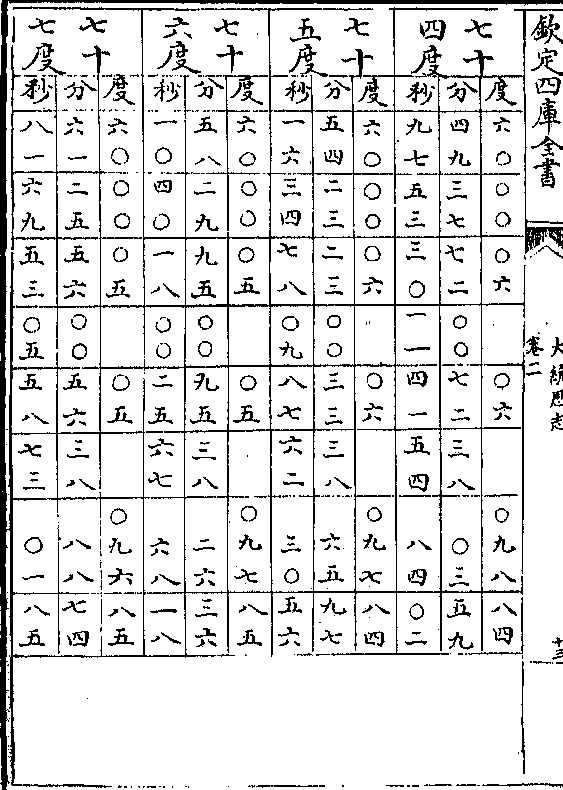 欽定四庫全書
大統厯志
卷二
十三
七十
四度
度 六〇 〇〇 〇六 〇六 〇九八 八四
分 四九 三七 七二 〇〇 七二 三八 〇三 五九
秒 九七 五三 三〇 一一 四一 五四 八四 〇二
七十
五度
度 六〇 〇〇 〇六 〇六 〇九七 八四
分 五四 二三 二三 〇〇 三三 三八 六五 九七
秒 一六 三四 七八 〇九 八七 六二 三〇 五六
七十
六度
度 六〇 〇〇 〇五 〇五 〇九七 八五
分 五八 二九 九五 〇〇 九五 三八 二六 三六
秒 一〇 四〇 一八 〇〇 二五 六七 六八 一八
七十
七度
度 六〇 〇〇 〇五 〇五 〇九六 八五
分 六一 二五 五六 〇〇 五六 三八 八八 七四
秒 八一 六九 五三 〇五 五八 七三 〇一 八五